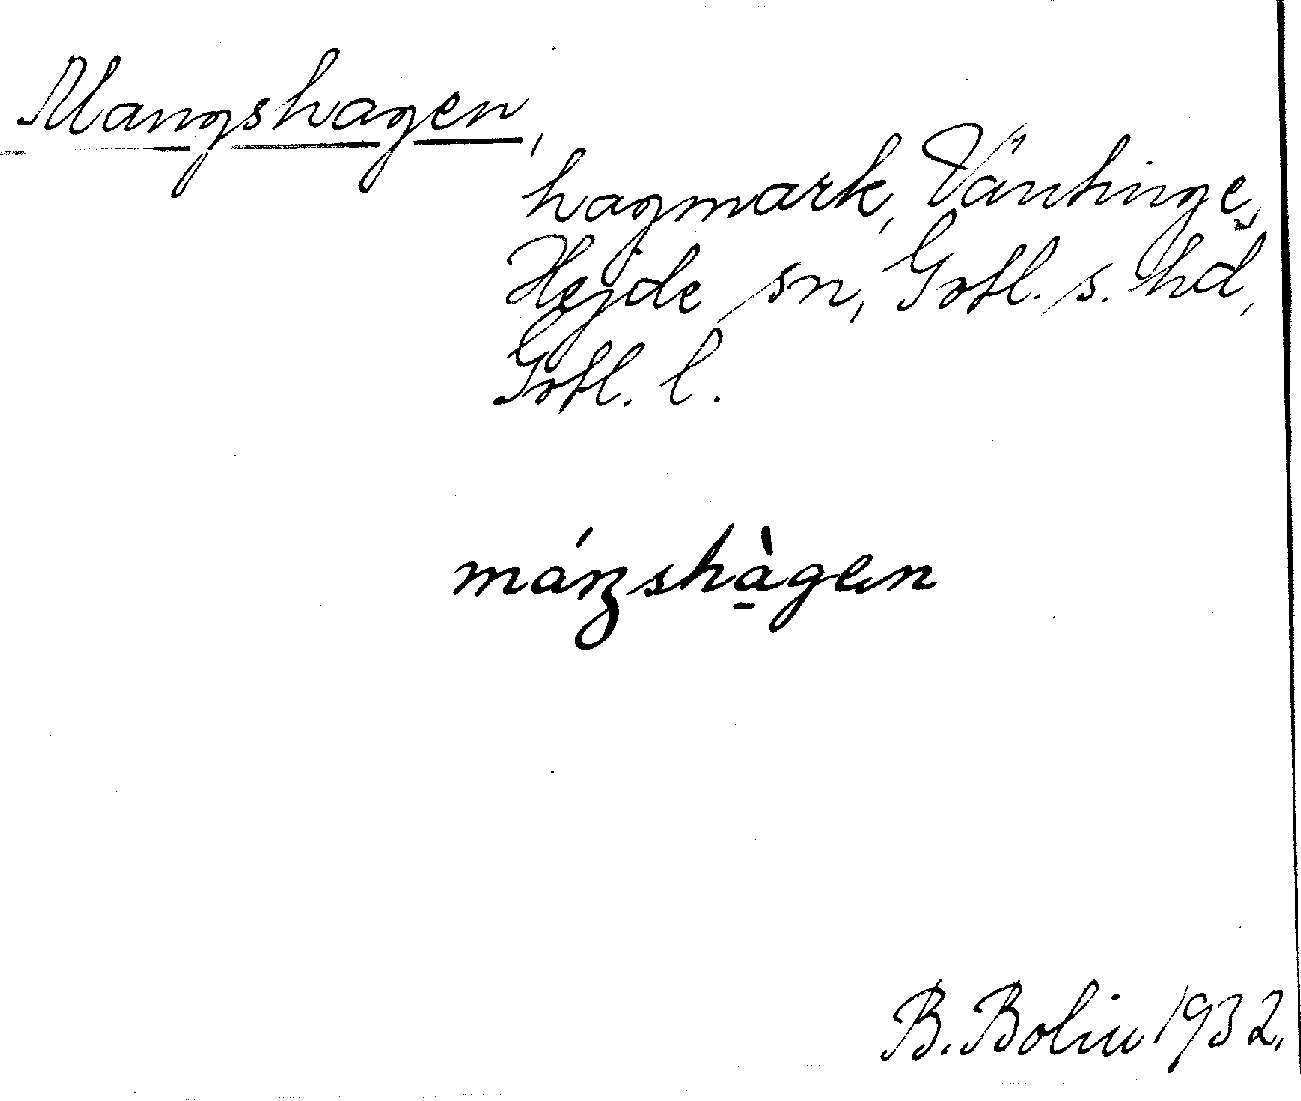 Mangshagen,
hagmark, Väntinge,
Hejde sn, Gotl. s. hd,
Gotl. l.
máŋshàgen
B. Bolin 1932.